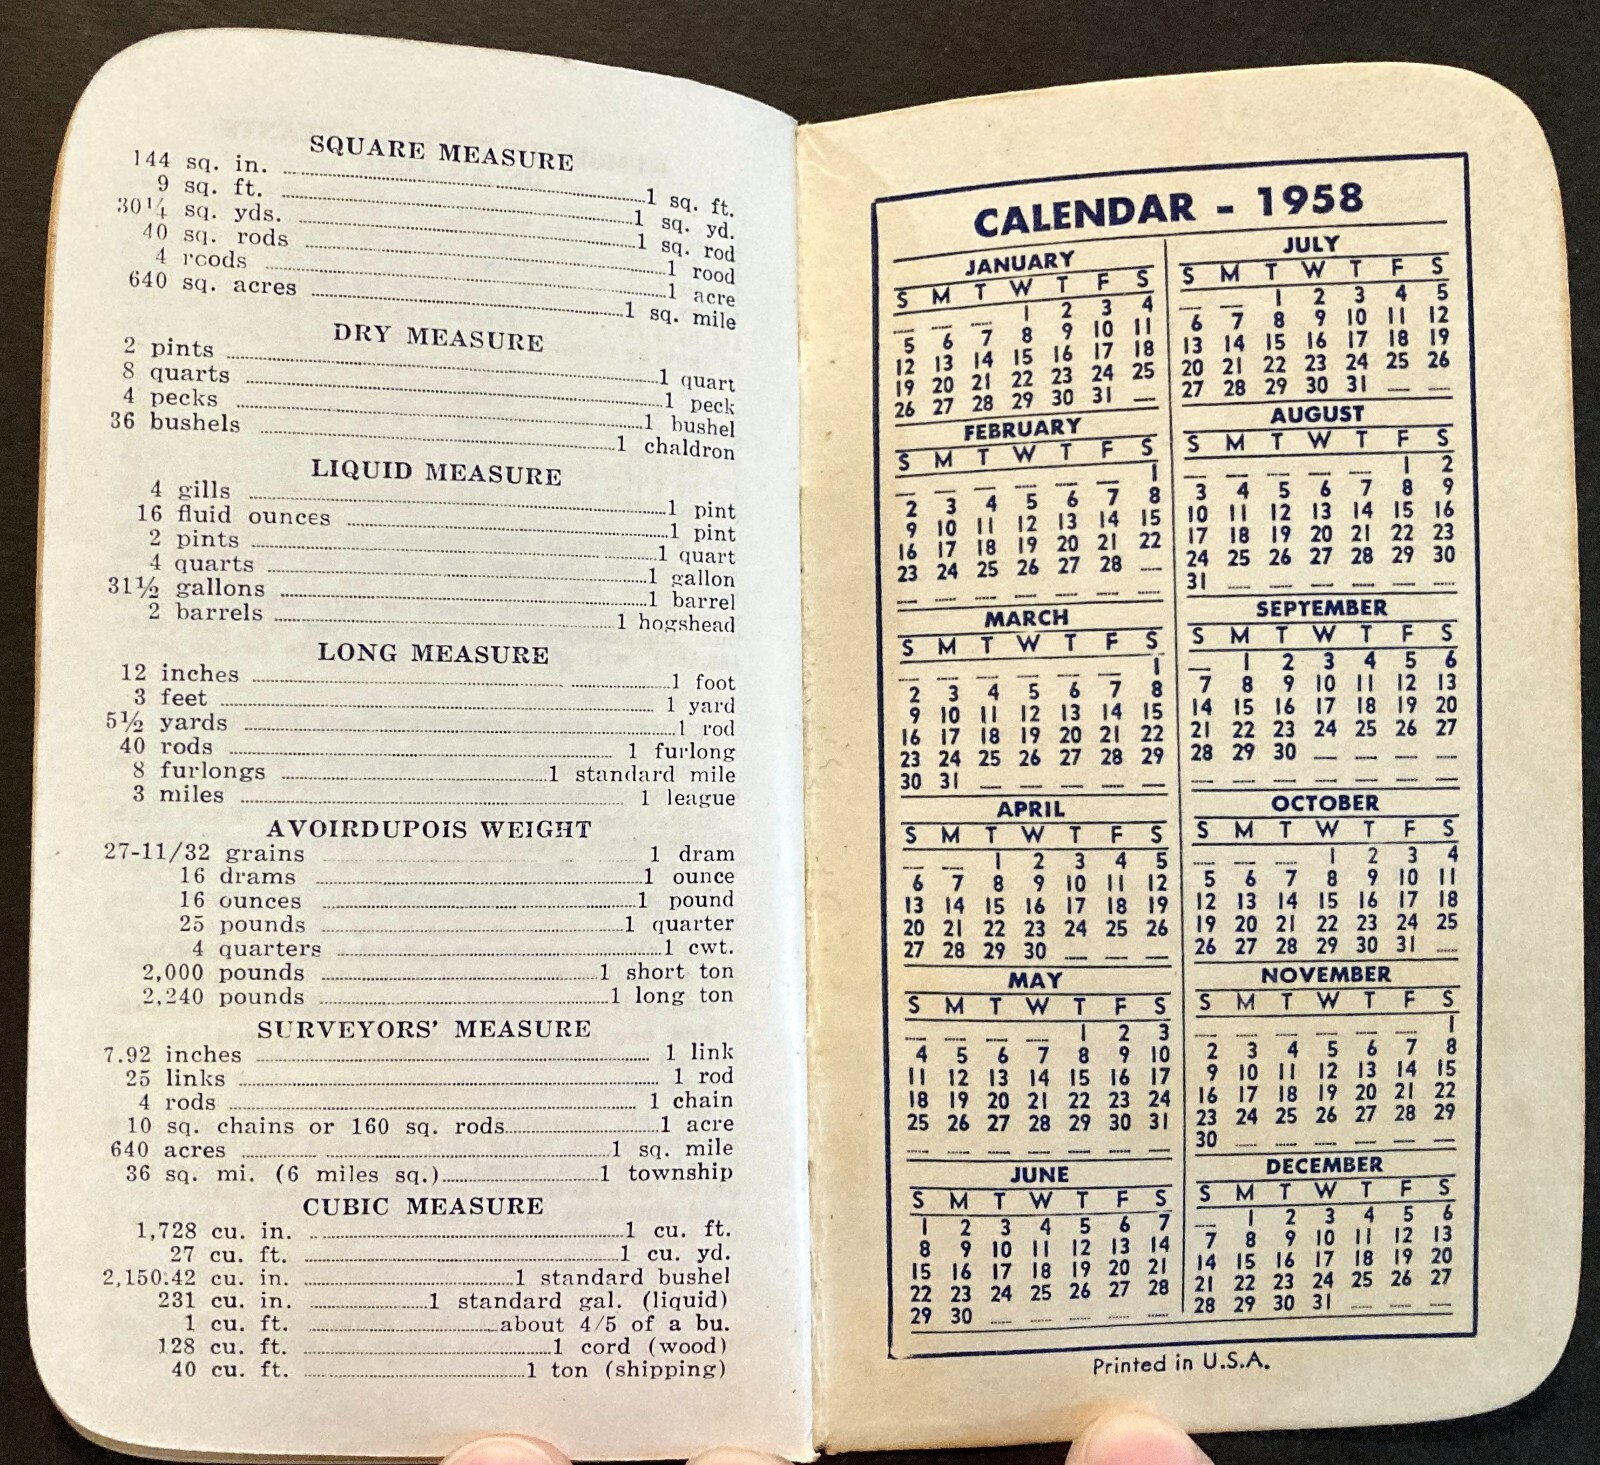 SQUARE MEASURE
144 sq. in. 1 sq. ft.
9 sq. ft. 1 sq. yd.
30¼ sq. yds. 1 sq. rod
40 sq. rods 1 rood
4 rcods 1 acre
640 sq. acres 1 sq. mile
DRY MEASURE
2 pints 1 quart
8 quarts 1 peck
4 pecks 1 bushel
36 bushels 1 chaldron
LIQUID MEASURE
4 gills 1 pint
16 fluid ounces 1 pint
2 pints 1 quart
4 quarts 1 gallon
31½ gallons 1 barrel
2 barrels 1 hogshead
LONG MEASURE
12 inches 1 foot
3 feet 1 yard
5½ yards 1 rod
40 rods 1 furlong
8 furlongs 1 standard mile
3 miles 1 league
AVOIRDUPOIS WEIGHT
27-11/32 grains 1 dram
16 drams 1 ounce
16 ounces 1 pound
25 pounds 1 quarter
4 quarters 1 cwt.
2,000 pounds 1 short ton
2,240 pounds 1 long ton
SURVEYORS' MEASURE
7.92 inches 1 link
25 links 1 rod
4 rods 1 chain
10 sq. chains or 160 sq. rods 1 acre
640 acres 1 sq. mile
36 sq. mi. (6 miles sq.) 1 township
CUBIC MEASURE
1,728 cu. in. 1 cu. ft.
27 cu. ft. 1 cu. yd.
2,150.42 cu. in. 1 standard bushel
231 cu. in. 1 standard gal. (liquid)
1 cu. ft. about 4/5 of a bu.
128 cu. ft. 1 cord (wood)
40 cu. ft. 1 ton (shipping)
CALENDAR - 1958
JANUARY
S M T W T F S
1 2 3 4
5 6 7 8 9 10 11
12 13 14 15 16 17 18
19 20 21 22 23 24 25
26 27 28 29 30 31
FEBRUARY
S M T W T F S
1
2 3 4 5 6 7 8
9 10 11 12 13 14 15
16 17 18 19 20 21 22
23 24 25 26 27 28
MARCH
S M T W T F S
1
2 3 4 5 6 7 8
9 10 11 12 13 14 15
16 17 18 19 20 21 22
23 24 25 26 27 28 29
30 31
APRIL
S M T W T F S
1 2 3 4 5
6 7 8 9 10 11 12
13 14 15 16 17 18 19
20 21 22 23 24 25 26
27 28 29 30
MAY
S M T W T F S
1 2 3
4 5 6 7 8 9 10
11 12 13 14 15 16 17
18 19 20 21 22 23 24
25 26 27 28 29 30 31
JUNE
S M T W T F S
1 2 3 4 5 6 7
8 9 10 11 12 13 14
15 16 17 18 19 20 21
22 23 24 25 26 27 28
29 30
JULY
S M T W T F S
1 2 3 4 5
6 7 8 9 10 11 12
13 14 15 16 17 18 19
20 21 22 23 24 25 26
27 28 29 30 31
AUGUST
S M T W T F S
1 2
3 4 5 6 7 8 9
10 11 12 13 14 15 16
17 18 19 20 21 22 23
24 25 26 27 28 29 30
31
SEPTEMBER
S M T W T F S
1 2 3 4 5 6
7 8 9 10 11 12 13
14 15 16 17 18 19 20
21 22 23 24 25 26 27
28 29 30
OCTOBER
S M T W T F S
1 2 3 4
5 6 7 8 9 10 11
12 13 14 15 16 17 18
19 20 21 22 23 24 25
26 27 28 29 30 31
NOVEMBER
S M T W T F S
1
2 3 4 5 6 7 8
9 10 11 12 13 14 15
16 17 18 19 20 21 22
23 24 25 26 27 28 29
30
DECEMBER
S M T W T F S
1 2 3 4 5 6
7 8 9 10 11 12 13
14 15 16 17 18 19 20
21 22 23 24 25 26 27
28 29 30 31
Printed in U.S.A.